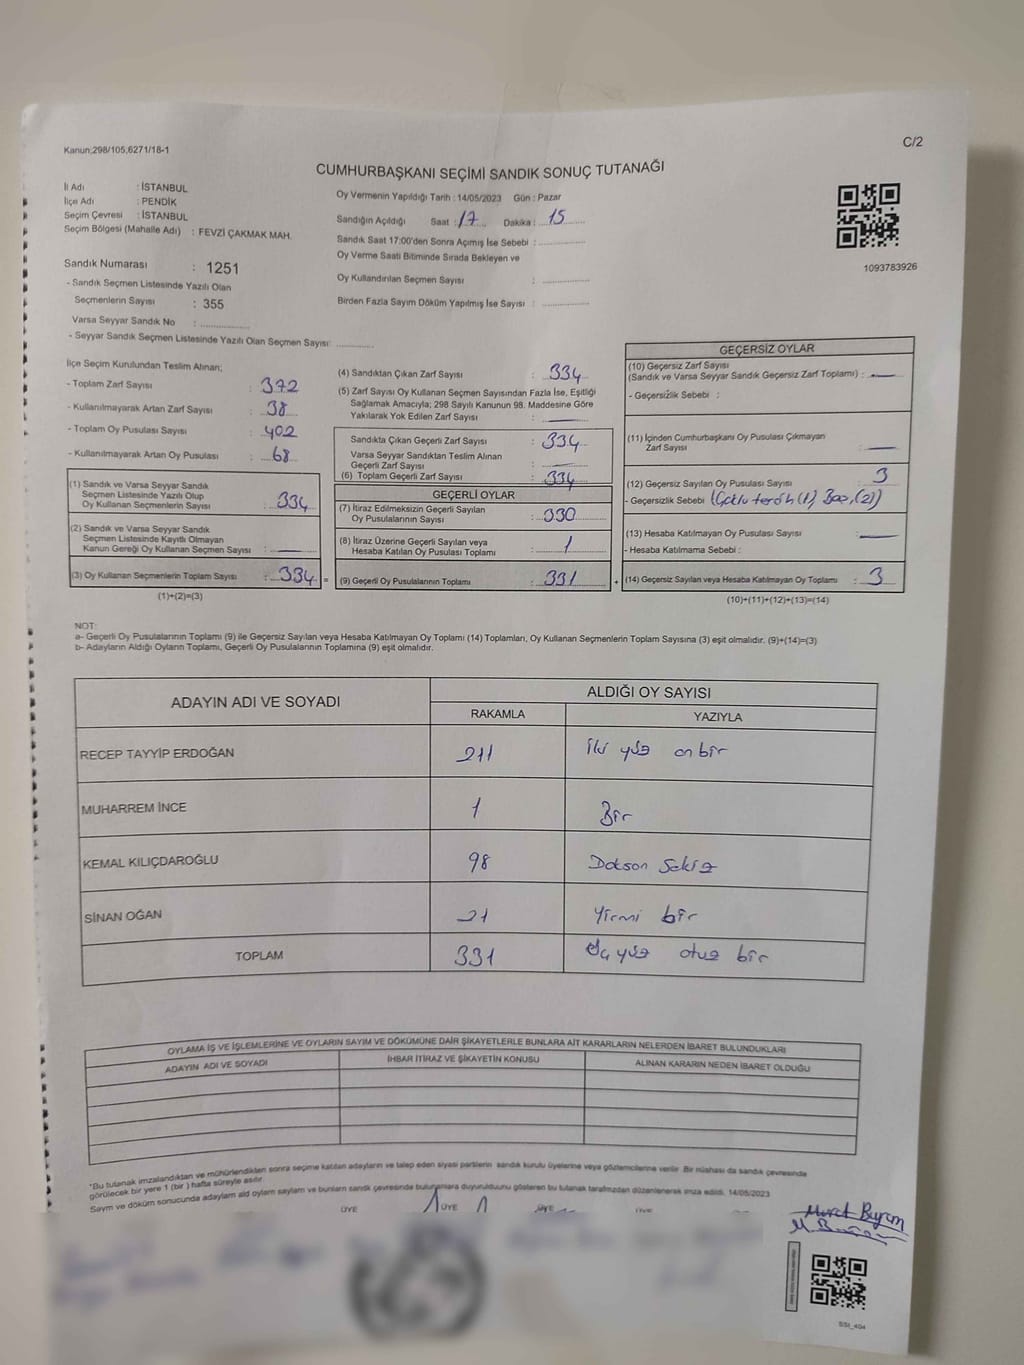 Kanun;298/105,6271/18-1
C/2
CUMHURBAŞKANI SEÇİMİ SANDIK SONUÇ TUTANAĞI
İl Adı : İSTANBUL
İlçe Adı : PENDİK
Seçim Çevresi : İSTANBUL
Seçim Bölgesi (Mahalle Adı) : FEVZİ ÇAKMAK MAH.
Sandık Numarası : 1251
- Sandık Seçmen Listesinde Yazılı Olan
Seçmenlerin Sayısı : 355
Varsa Seyyar Sandık No : ................
- Seyyar Sandık Seçmen Listesinde Yazılı Olan Seçmen Sayısı: ............
Oy Vermenin Yapıldığı Tarih : 14/05/2023 Gün : Pazar
Sandığın Açıldığı Saat : 17 Dakika : 15
Sandık Saat 17:00'den Sonra Açımış İse Sebebi : ................
Oy Verme Saati Bitiminde Sırada Bekleyen ve
Oy Kullandırılan Seçmen Sayısı : ................
Birden Fazla Sayım Döküm Yapılmış İse Sayısı : ................
1093783926
İlçe Seçim Kurulundan Teslim Alınan;
- Toplam Zarf Sayısı : 372
- Kullanılmayarak Artan Zarf Sayısı : 38
- Toplam Oy Pusulası Sayısı : 402
- Kullanılmayarak Artan Oy Pusulası : 68
(1) Sandık ve Varsa Seyyar Sandık
Seçmen Listesinde Yazılı Olup
Oy Kullanan Seçmenlerin Sayısı : 334
(2) Sandık ve Varsa Seyyar Sandık
Seçmen Listesinde Kayıtlı Olmayan
Kanun Gereği Oy Kullanan Seçmen Sayısı : —
(3) Oy Kullanan Seçmenlerin Toplam Sayısı : 334 =
(1)+(2)=(3)
(4) Sandıktan Çıkan Zarf Sayısı : 334
(5) Zarf Sayısı Oy Kullanan Seçmen Sayısından Fazla İse, Eşitliği
Sağlamak Amacıyla; 298 Sayılı Kanunun 98. Maddesine Göre
Yakılarak Yok Edilen Zarf Sayısı : —
Sandıkta Çıkan Geçerli Zarf Sayısı : 334
Varsa Seyyar Sandıktan Teslim Alınan
Geçerli Zarf Sayısı : —
(6) Toplam Geçerli Zarf Sayısı : 334
GEÇERLİ OYLAR
(7) İtiraz Edilmeksizin Geçerli Sayılan
Oy Pusulalarının Sayısı : 330
(8) İtiraz Üzerine Geçerli Sayılan veya
Hesaba Katılan Oy Pusulası Toplamı : 1
(9) Geçerli Oy Pusulalarının Toplamı : 331 +
GEÇERSİZ OYLAR
(10) Geçersiz Zarf Sayısı
(Sandık ve Varsa Seyyar Sandık Geçersiz Zarf Toplamı) : —
- Geçersizlik Sebebi :
(11) İçinden Cumhurbaşkanı Oy Pusulası Çıkmayan
Zarf Sayısı : —
(12) Geçersiz Sayılan Oy Pusulası Sayısı : 3
- Geçersizlik Sebebi :
(13) Hesaba Katılmayan Oy Pusulası Sayısı : —
- Hesaba Katılmama Sebebi :
(14) Geçersiz Sayılan veya Hesaba Katılmayan Oy Toplamı : 3
(10)+(11)+(12)+(13)=(14)
NOT:
a- Geçerli Oy Pusulalarının Toplamı (9) ile Geçersiz Sayılan veya Hesaba Katılmayan Oy Toplamı (14) Toplamları, Oy Kullanan Seçmenlerin Toplam Sayısına (3) eşit olmalıdır. (9)+(14)=(3)
b- Adayların Aldığı Oyların Toplamı, Geçerli Oy Pusulalarının Toplamına (9) eşit olmalıdır.
ADAYIN ADI VE SOYADI
ALDIĞI OY SAYISI
RAKAMLA YAZIYLA
RECEP TAYYİP ERDOĞAN 211 İki yüz on bir
MUHARREM İNCE 1 Bir
KEMAL KILIÇDAROĞLU 98 Doksan Sekiz
SİNAN OĞAN 21 Yirmi bir
TOPLAM 331 Üç yüz otuz bir
OYLAMA İŞ VE İŞLEMLERİNE VE OYLARIN SAYIM VE DÖKÜMÜNE DAİR ŞİKAYETLERLE BUNLARA AİT KARARLARIN NELERDEN İBARET BULUNDUKLARI
ADAYIN ADI VE SOYADI İHBAR İTİRAZ VE ŞİKAYETİN KONUSU ALINAN KARARIN NEDEN İBARET OLDUĞU
*Bu tutanak imzalandıktan ve mühürlendikten sonra seçime katılan adayların ve talep eden siyasi partilerin sandık kurulu üyelerine veya gözlemcilerine verilir. Bir nüshası da sandık çevresinde
görülecek bir yere 1 (bir) hafta süreyle asılır.
Sayım ve döküm sonucunda adayların oyların sayım ve bunların sandık çevresinde duyurulduunu gösteren bu tutanak tarafımızdan düzenlenerek imza edildi. 14/05/2023
ÜYE ÜYE ÜYE
Murat Bayram
SSt_404